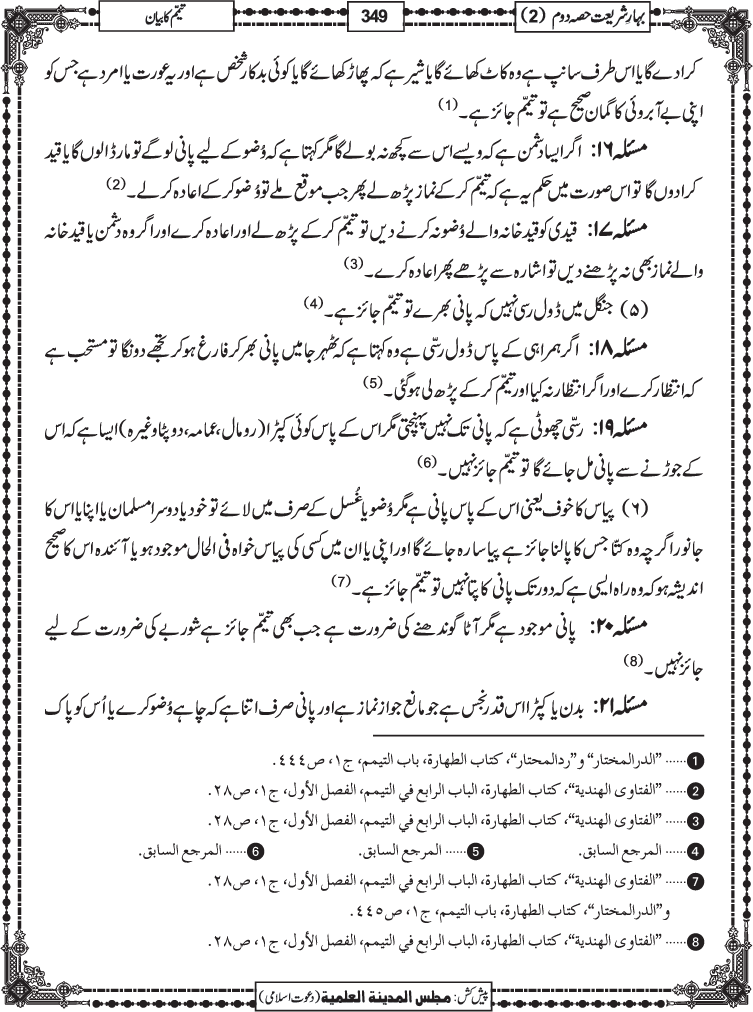 بہارِ شریعت حصہ دوم (2)
349
تیمّم کا بیان
کرا دے گا یا اس طرف سانپ ہے وہ کاٹ کھائے گا یا شیر ہے کہ پھاڑ کھائے گا یا کوئی بدکار شخص ہے اور یہ عورت یا امرد ہے جس کو
اپنی بے آبروئی کا گمان صحیح ہے تو تیمّم جائز ہے۔ (1)
مسئلہ ۱۶: اگر ایسا دشمن ہے کہ ویسے اس سے کچھ نہ بولے گا مگر کہتا ہے کہ وُضو کے لیے پانی لو گے تو مار ڈالوں گا یا قید
کرا دوں گا تو اس صورت میں حکم یہ ہے کہ تیمّم کر کے نماز پڑھ لے پھر جب موقع ملے تو وُضو کر کے اعادہ کر لے۔ (2)
مسئلہ ۱۷: قیدی کو قید خانہ والے وُضو نہ کرنے دیں تو تیمّم کر کے پڑھ لے اور اعادہ کرے اور اگر وہ دشمن یا قید خانہ
والے نماز بھی نہ پڑھنے دیں تو اشارہ سے پڑھے پھر اعادہ کرے۔ (3)
(۵) جنگل میں ڈول رسی نہیں کہ پانی بھرے تو تیمّم جائز ہے۔ (4)
مسئلہ ۱۸: اگر ہمراہی کے پاس ڈول رسّی ہے وہ کہتا ہے کہ ٹھہر جا میں پانی بھر کر فارغ ہو کر تجھے دونگا تو مستحب ہے
کہ انتظار کرے اور اگر انتظار نہ کیا اور تیمّم کر کے پڑھ لی ہو گئی۔ (5)
مسئلہ ۱۹: رسّی چھوٹی ہے کہ پانی تک نہیں پہنچتی مگر اس کے پاس کوئی کپڑا (رومال، عمامہ، دوپٹا وغیرہ) ایسا ہے کہ اس
کے جوڑنے سے پانی مل جائے گا تو تیمّم جائز نہیں۔ (6)
(۶) پیاس کا خوف یعنی اس کے پاس پانی ہے مگر وُضو یا غُسل کے صرف میں لائے تو خود یا دوسرا مسلمان یا اپنا یا اس کا
جانور اگرچہ وہ کتّا جس کا پالنا جائز ہے پیاسا رہ جائے گا اور اپنی یا ان میں کسی کی پیاس خواہ فی الحال موجود ہو یا آئندہ اس کا صحیح
اندیشہ ہو کہ وہ راہ ایسی ہے کہ دور تک پانی کا پتا نہیں تو تیمّم جائز ہے۔ (7)
مسئلہ ۲۰: پانی موجود ہے مگر آٹا گوندھنے کی ضرورت ہے جب بھی تیمّم جائز ہے شوربے کی ضرورت کے لیے
جائز نہیں۔ (8)
مسئلہ ۲۱: بدن یا کپڑا اس قدر نجس ہے جو مانع جوازِ نماز ہے اور پانی صرف اتنا ہے کہ چاہے وُضو کرے یا اُس کو پاک
1 ...... ”الدرالمختار“ و”ردالمحتار“، کتاب الطهارة، باب التیمم، ج١، ص٤٤٤.
2 ...... ”الفتاوى الهندية“، کتاب الطهارة، الباب الرابع في التیمم، الفصل الأول، ج١، ص٢٨.
3 ...... ”الفتاوى الهندية“، کتاب الطهارة، الباب الرابع في التیمم، الفصل الأول، ج١، ص٢٨.
4 ...... المرجع السابق. 5 ...... المرجع السابق. 6 ...... المرجع السابق.
7 ...... ”الفتاوى الهندية“، کتاب الطهارة، الباب الرابع في التیمم، الفصل الأول، ج١، ص٢٨.
و”الدرالمختار“، کتاب الطهارة، باب التیمم، ج١، ص٤٤٥.
8 ...... ”الفتاوى الهندية“، کتاب الطهارة، الباب الرابع في التیمم، الفصل الأول، ج١، ص٢٨.
پیش کش: مجلس المدينة العلمية (دعوت اسلامی)